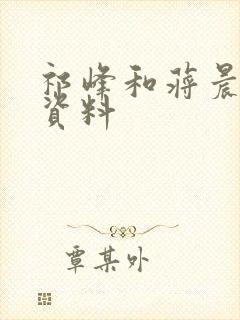 祁峰和蒋晨
資料
覃某外